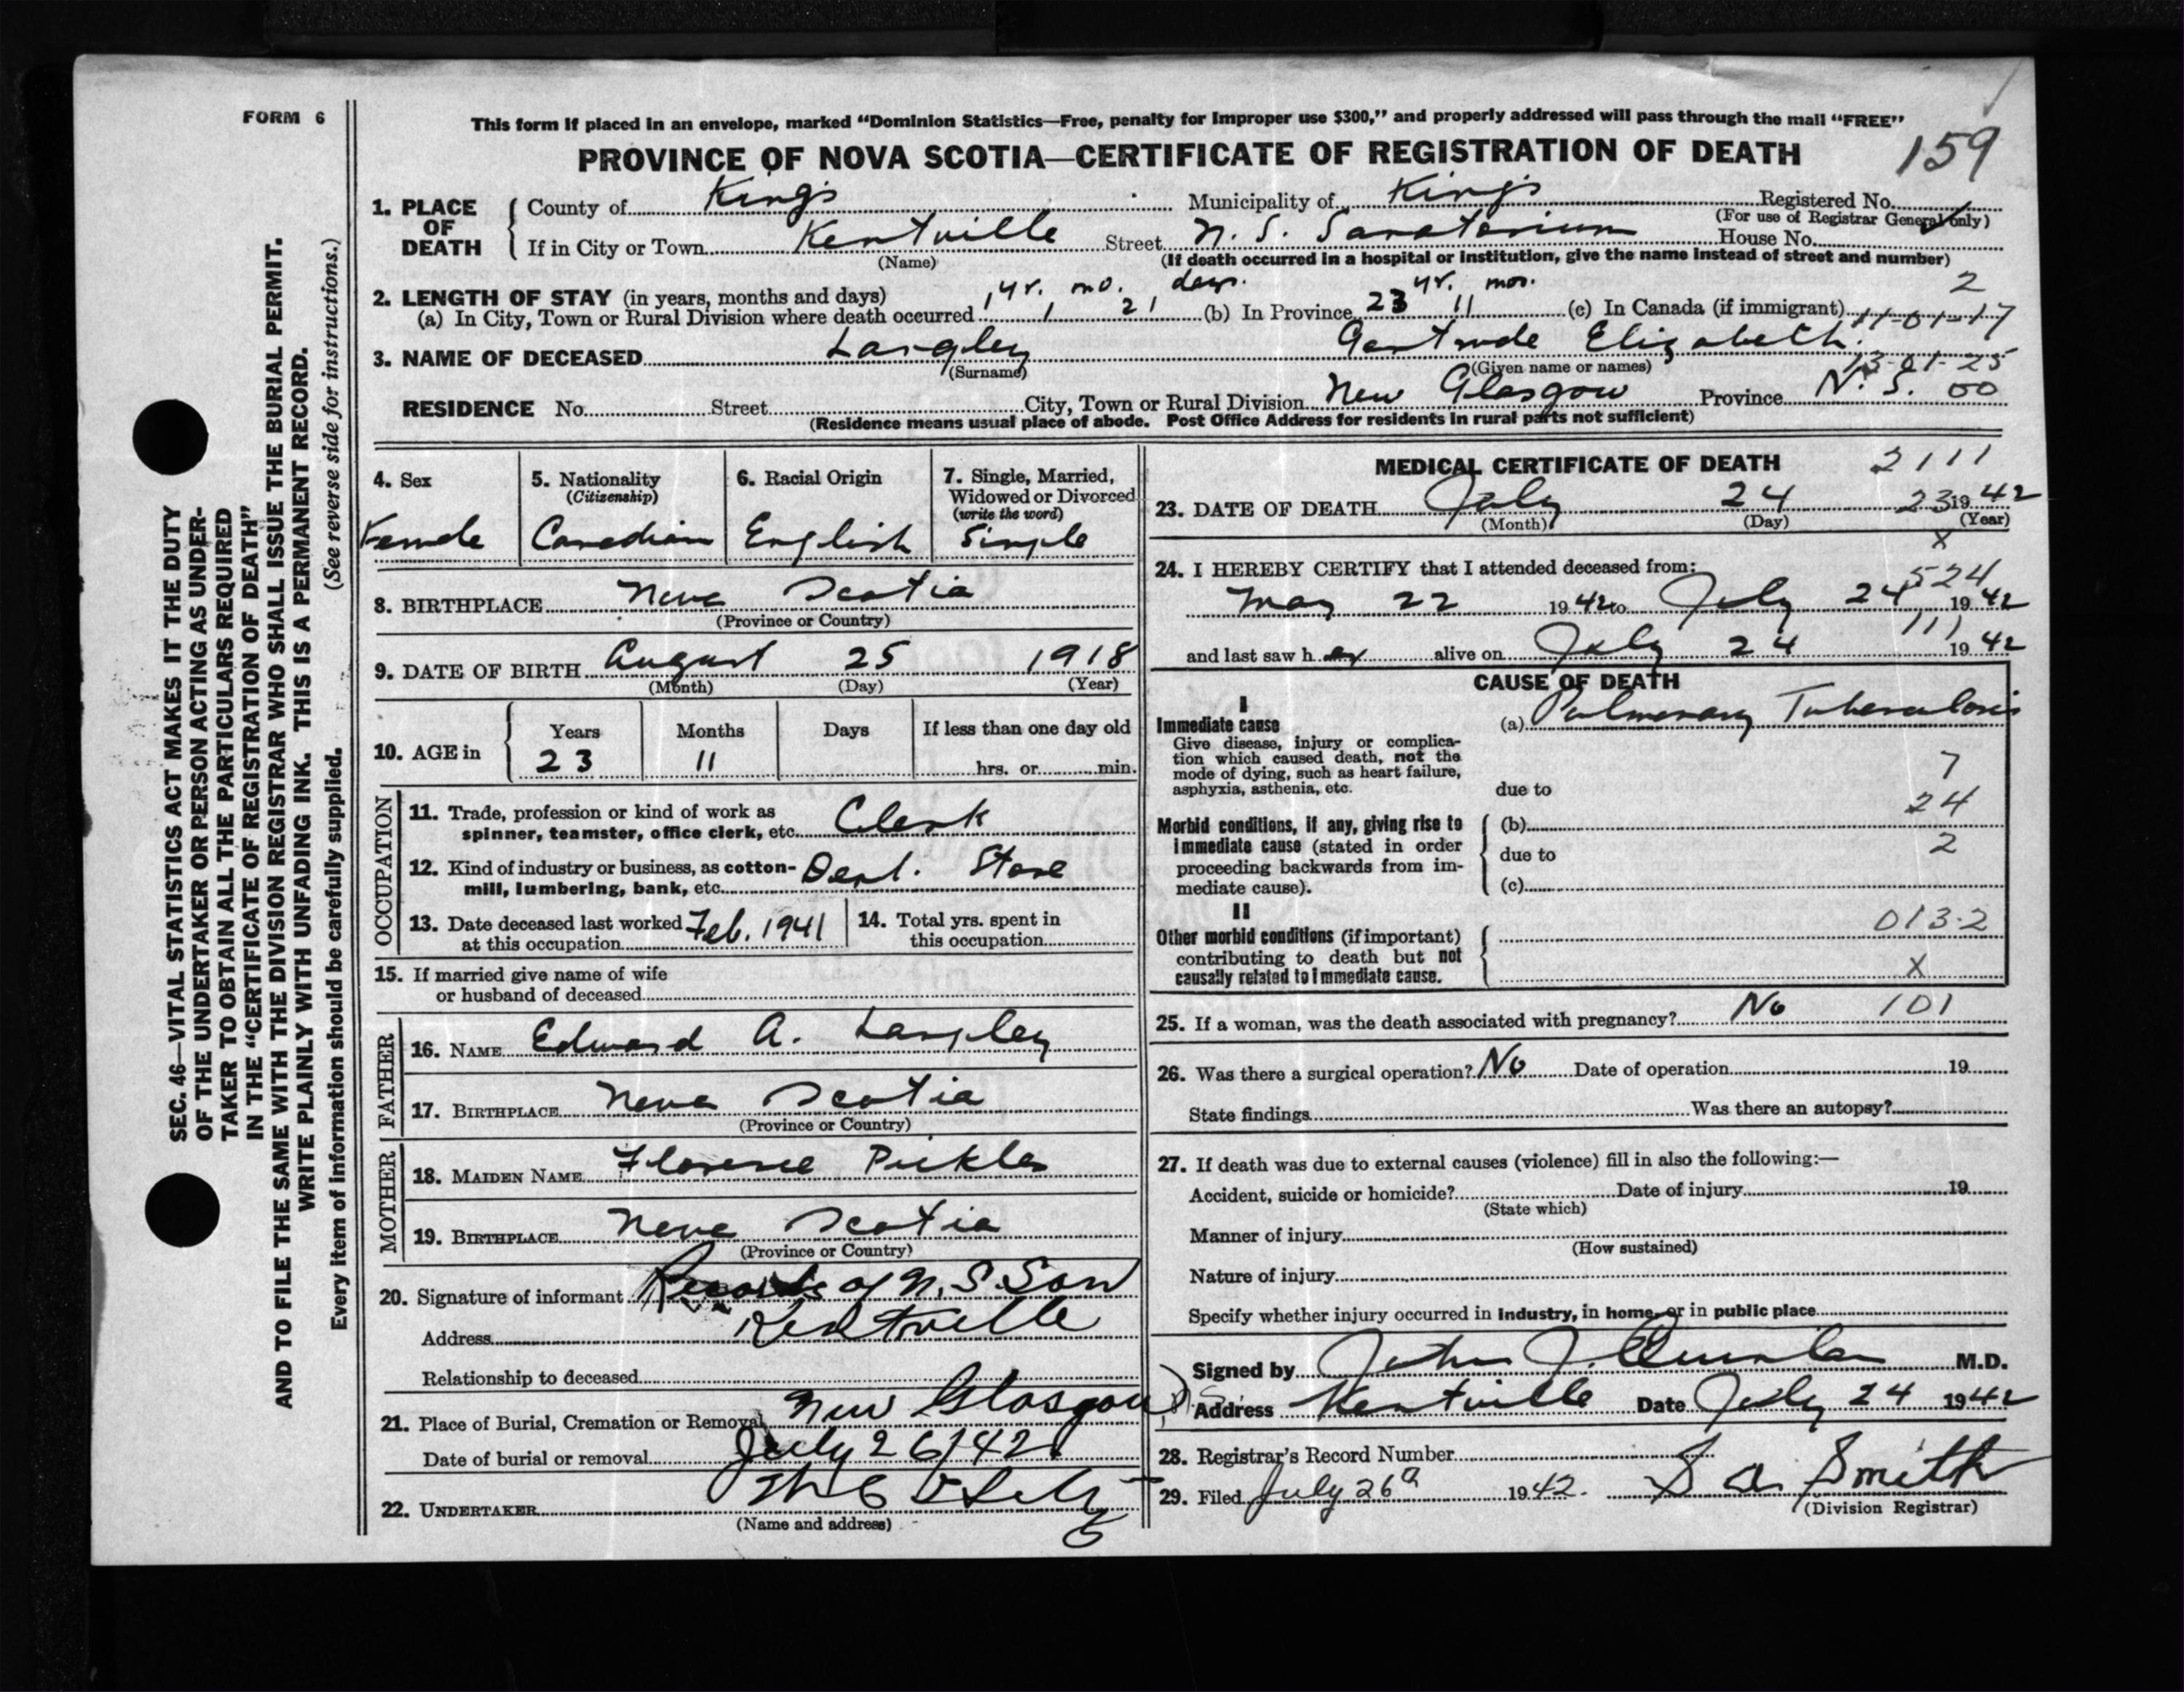 FORM 6
This form if placed in an envelope, marked “Dominion Statistics—Free, penalty for improper use $300,” and properly addressed will pass through the mail “FREE”
PROVINCE OF NOVA SCOTIA—CERTIFICATE OF REGISTRATION OF DEATH 159
1. PLACE OF DEATH County of Kings Municipality of Kings Registered No.
(For use of Registrar General only)
If in City or Town Kentville Street N. S. Sanatorium House No.
(Name) (If death occurred in a hospital or institution, give the name instead of street and number)
2. LENGTH OF STAY (in years, months and days) yr. mo. days. yr. mos. 2
(a) In City, Town or Rural Division where death occurred 1 1 21 (b) In Province 23 11 (c) In Canada (if immigrant) 11-01-17
3. NAME OF DECEASED Langley Gertrude Elizabeth.
(Surname) (Given name or names) 13-01-25
RESIDENCE No. Street City, Town or Rural Division New Glasgow Province N. S. 00
(Residence means usual place of abode. Post Office Address for residents in rural parts not sufficient)
4. Sex
Female
5. Nationality
(Citizenship)
Canadian
6. Racial Origin
English
7. Single, Married,
Widowed or Divorced
(write the word)
Single
8. BIRTHPLACE Nova Scotia
(Province or Country)
9. DATE OF BIRTH August 25 1918
(Month) (Day) (Year)
10. AGE in Years Months Days If less than one day old
23 11 hrs. or min.
OCCUPATION
11. Trade, profession or kind of work as
spinner, teamster, office clerk, etc. Clerk
12. Kind of industry or business, as cotton-
mill, lumbering, bank, etc. Dept. Store
13. Date deceased last worked
at this occupation Feb. 1941
14. Total yrs. spent in
this occupation
15. If married give name of wife
or husband of deceased
FATHER
16. NAME Edward A. Langley
17. BIRTHPLACE Nova Scotia
(Province or Country)
MOTHER
18. MAIDEN NAME Florence Pickles
19. BIRTHPLACE Nova Scotia
(Province or Country)
20. Signature of informant Records of N. S. San
Address Kentville
Relationship to deceased
21. Place of Burial, Cremation or Removal New Glasgow
Date of burial or removal July 26/42
22. UNDERTAKER
(Name and address)
MEDICAL CERTIFICATE OF DEATH 2111
23. DATE OF DEATH July 24 23 1942
(Month) (Day) (Year)
x
24. I HEREBY CERTIFY that I attended deceased from:
524
May 22 1942 to July 24 1942
111
and last saw her alive on July 24 1942
CAUSE OF DEATH
I
Immediate cause
Give disease, injury or complica-
tion which caused death, not the
mode of dying, such as heart failure,
asphyxia, asthenia, etc.
(a) Pulmonary Tuberculosis
7
due to
24
Morbid conditions, if any, giving rise to
immediate cause (stated in order
proceeding backwards from im-
mediate cause).
(b)
due to 2
(c)
II
Other morbid conditions (if important)
contributing to death but not
causally related to immediate cause.
013.2
X
25. If a woman, was the death associated with pregnancy? No 101
26. Was there a surgical operation? No Date of operation 19
State findings Was there an autopsy?
27. If death was due to external causes (violence) fill in also the following:—
Accident, suicide or homicide? Date of injury 19
(State which)
Manner of injury
(How sustained)
Nature of injury
Specify whether injury occurred in industry, in home, or in public place
Signed by John J. M.D.
Address Kentville Date July 24 1942
28. Registrar's Record Number
29. Filed July 26th 1942. S a. Smith
(Division Registrar)
SEC. 46—VITAL STATISTICS ACT MAKES IT THE DUTY
OF THE UNDERTAKER OR PERSON ACTING AS UNDER-
TAKER TO OBTAIN ALL THE PARTICULARS REQUIRED
IN THE “CERTIFICATE OF REGISTRATION OF DEATH”
AND TO FILE THE SAME WITH THE DIVISION REGISTRAR WHO SHALL ISSUE THE BURIAL PERMIT.
WRITE PLAINLY WITH UNFADING INK. THIS IS A PERMANENT RECORD.
Every item of information should be carefully supplied. (See reverse side for instructions.)